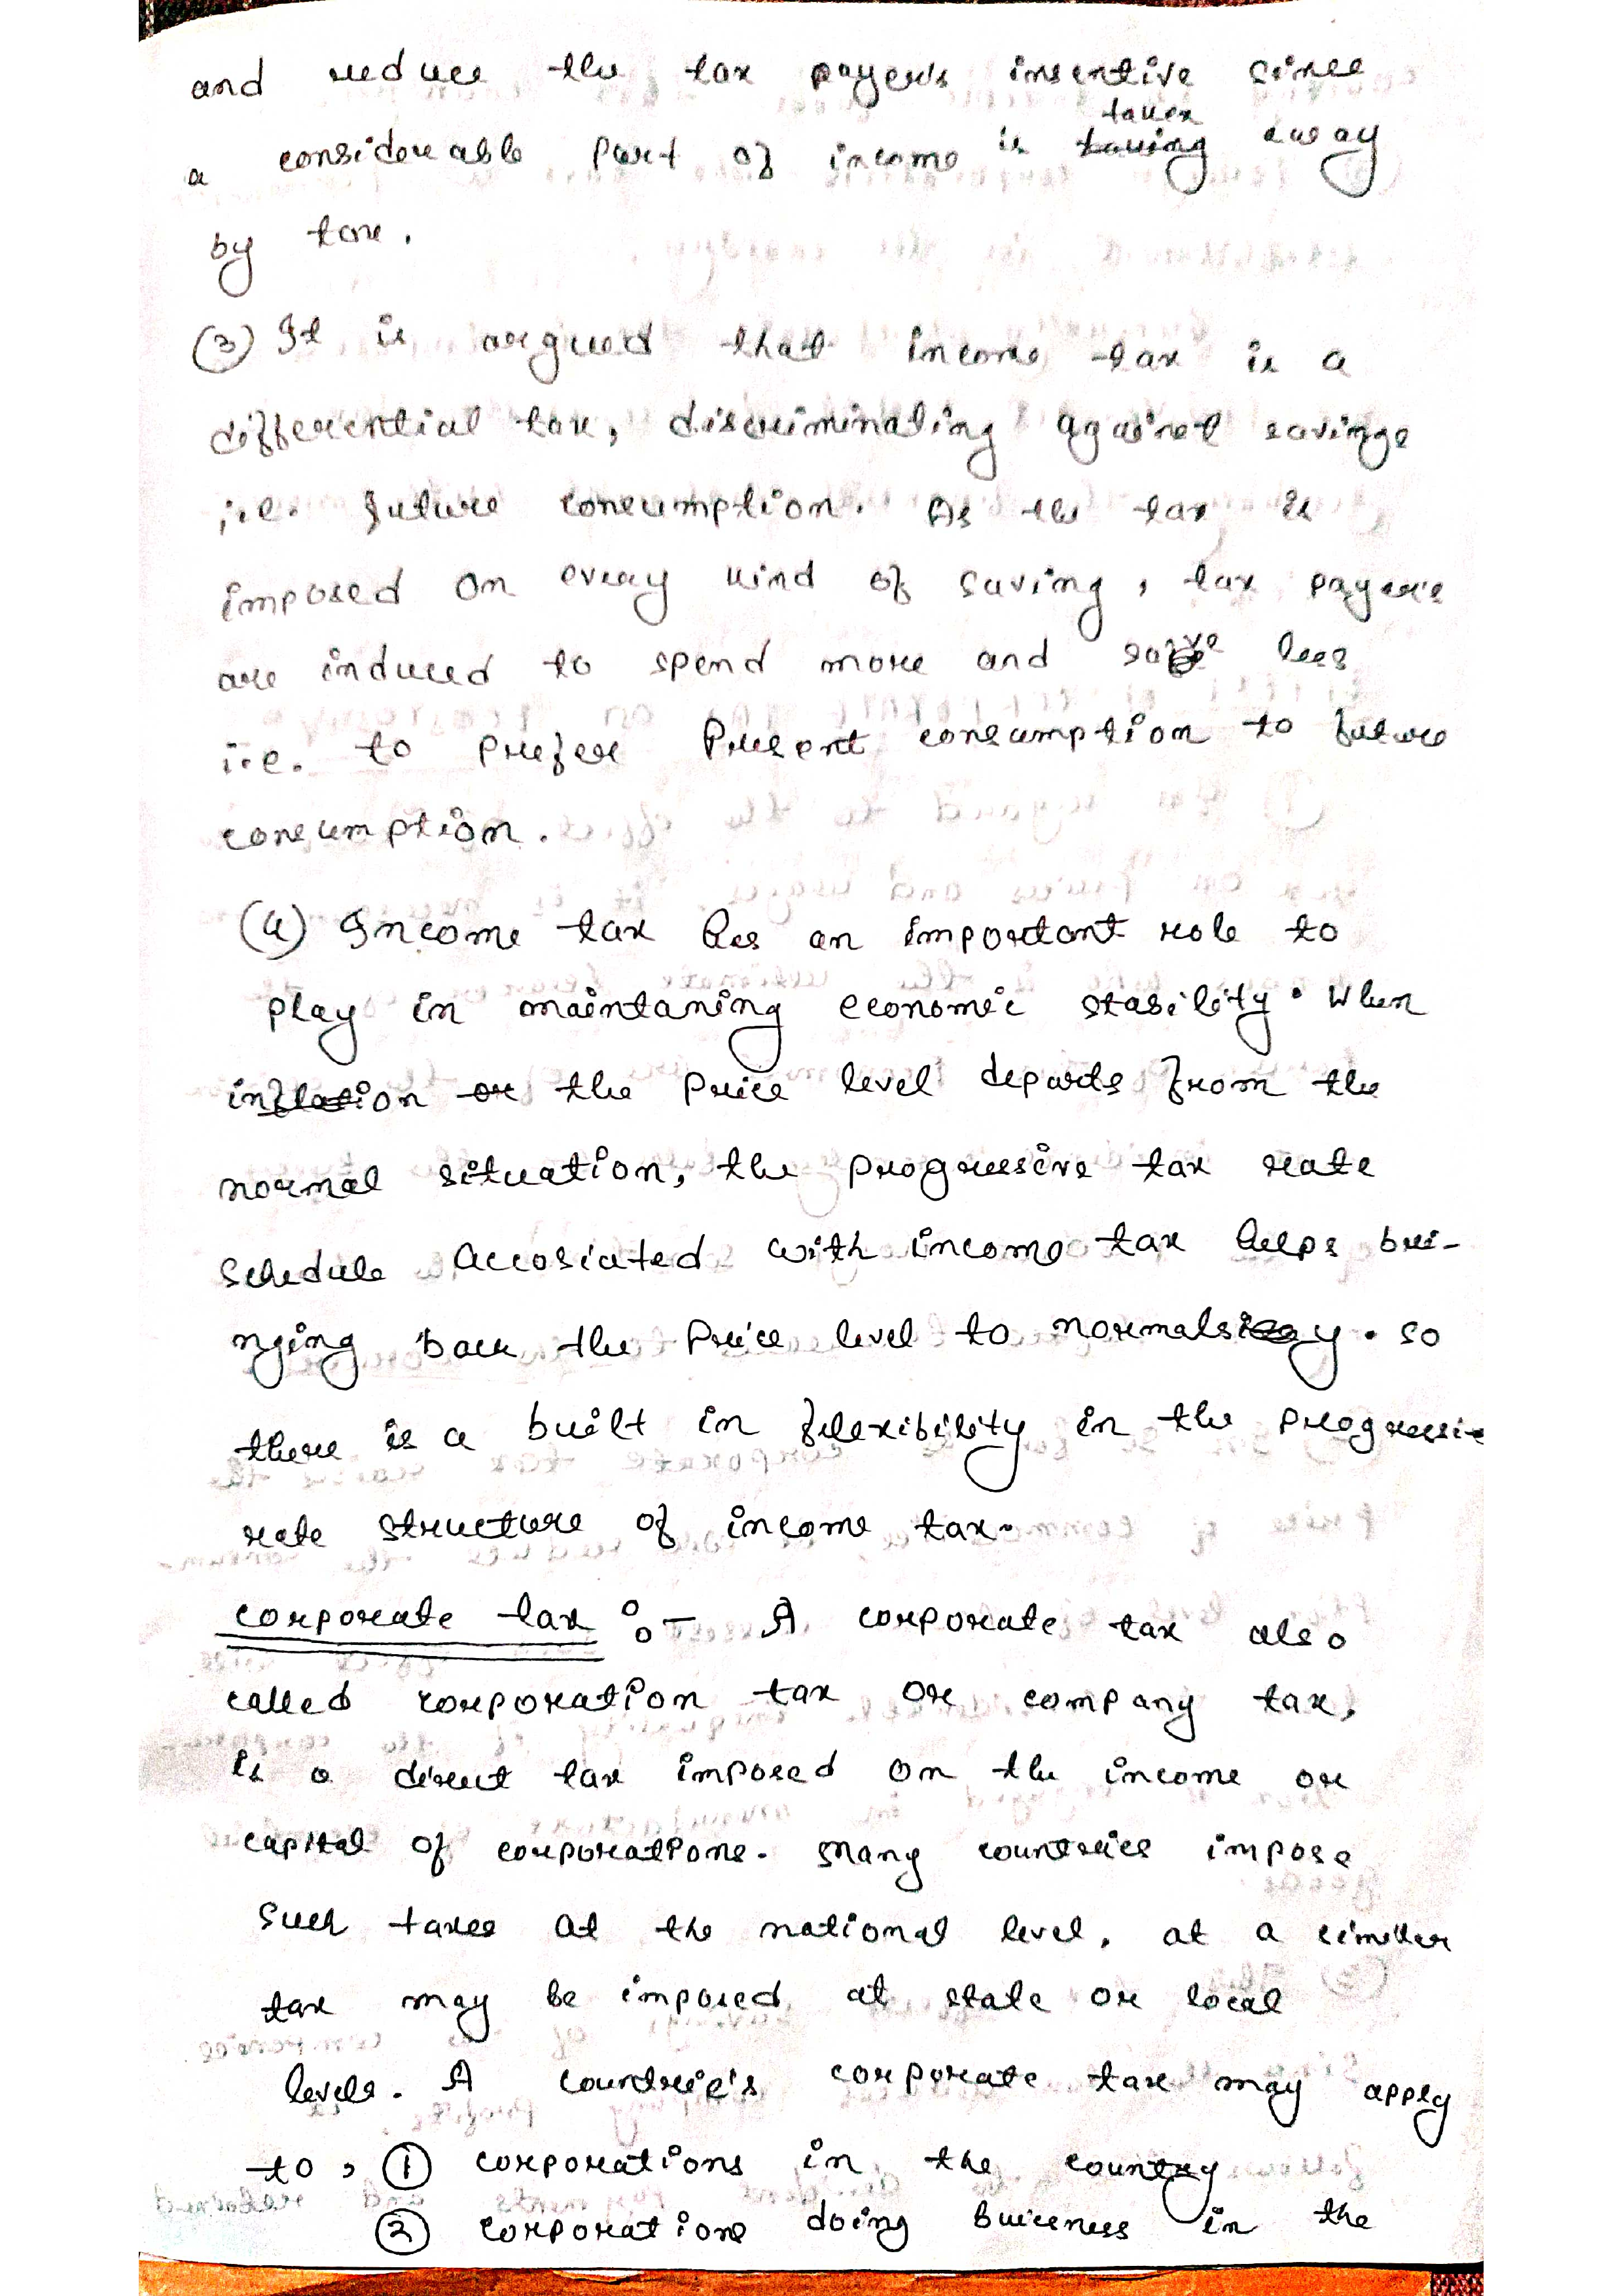 and reduce the tax payers insentive since
taken
a considerable part of income is taking away
by tax.
(3) It is argued that income tax is a
differential tax, discriminating against savings
i.e. future consumption. As the tax is
imposed on every kind of saving, tax payers
are induced to spend more and save less
i.e. to prefer Present consumption to future
consumption.
(4) Income tax has an important role to
play in maintaning economic stability. When
inflation or the price level departs from the
normal situation, the progressive tax rate
schedule accosiated with income tax helps bri-
nging back the Price level to normalsiy. so
there is a built in flexibility in the progressive
rate structure of income tax.
corporate tax :- A corporate tax also
called corporation tax or company tax,
is a direct tax imposed on the income or
capital of corporations. Many countries impose
such taxes at the national level, at a similar
tax may be imposed at state or local
levels. A countrie's corporate tax may apply
to, ① corporations in the country
② corporations doing buiseness in the